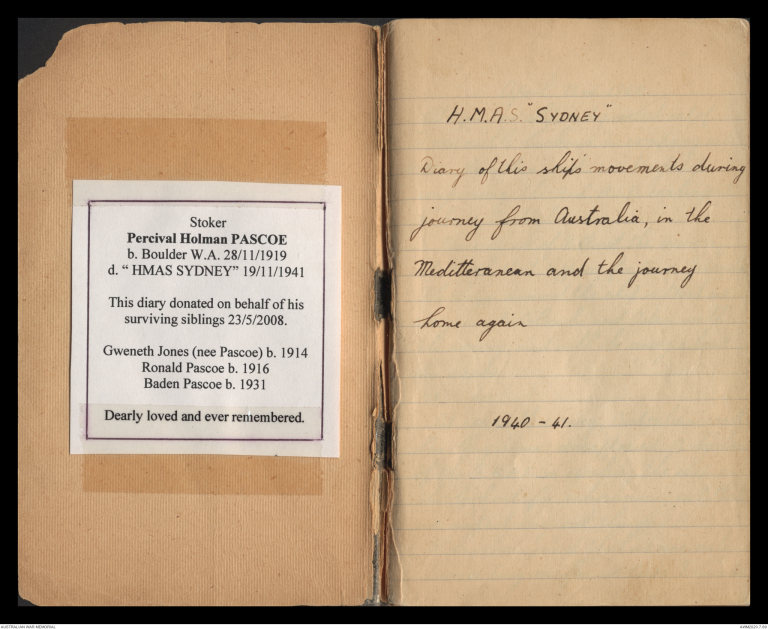 Stoker
Percival Holman PASCOE
b. Boulder W.A. 28/11/1919
d. “ HMAS SYDNEY” 19/11/1941
This diary donated on behalf of his
surviving siblings 23/5/2008.
Gweneth Jones (nee Pascoe) b. 1914
Ronald Pascoe b. 1916
Baden Pascoe b. 1931
Dearly loved and ever remembered.
H.M.A.S. "SYDNEY"
Diary of this ship's movements during
journey from Australia, in the
Meditteranean and the journey
home again
1940 - 41.
AUSTRALIAN WAR MEMORIAL